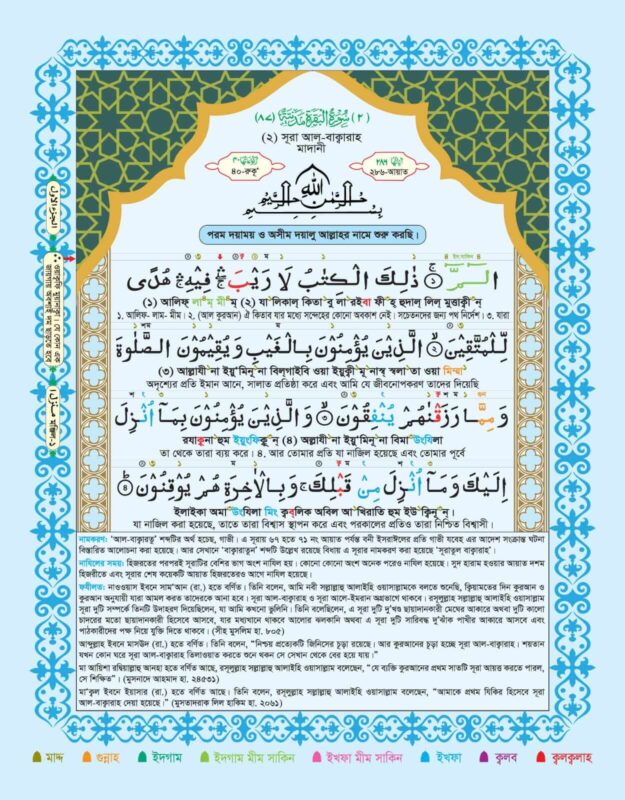 (٢) سُوْرَةُ الْبَقَرَةِ مَدَنِيَّةٌ (٨٧)
(২) সূরা আল্-বাক্বারাহ
মাদানী
৪০-রুকূ'
২৮৬-আয়াত
بِسْمِ اللّٰهِ الرَّحْمٰنِ الرَّحِيْمِ
পরম দয়াময় ও অসীম দয়ালু আল্লাহর নামে শুরু করছি।
الٓمّٓ ۚ ذٰلِكَ الْكِتٰبُ لَا رَيْبَ ۛ فِيْهِ ۛ هُدًى
(১) আলিফ্ লা---ম্ মী---ম্ (২) যা লিকাল্ কিতা বু লা রইবা ফী হ্ হুদাল্ লিল্ মুত্তাক্বী ন্
১. আলিফ- লাম- মীম। ২. (আল কুরআন) ঐ কিতাব যার মধ্যে সন্দেহের কোনো অবকাশ নেই। সচেতনদের জন্য পথ নির্দেশ। ৩. যারা
لِّلْمُتَّقِيْنَ ۙ الَّذِيْنَ يُؤْمِنُوْنَ بِالْغَيْبِ وَ يُقِيْمُوْنَ الصَّلٰوةَ
(৩) আল্লাযী না ইয়ু'মিনূ না বিল্গাইবি ওয়া ইয়ুক্বী মূ নাস্ব্ স্বলা তা ওয়া মিম্মা
অদৃশ্যের প্রতি ইমান আনে, সালাত প্রতিষ্ঠা করে এবং আমি যে জীবনোপকরণ তাদের দিয়েছি
وَ مِمَّا رَزَقْنٰهُمْ يُنْفِقُوْنَ ۙ وَالَّذِيْنَ يُؤْمِنُوْنَ بِمَآ اُنْزِلَ
রযাক্বনা হুম ইয়ুংফিকূ ন্ (৪) অল্লাযী না ইয়ু'মিনূ না বিমা উংযিলা
তা থেকে তারা ব্যয় করে। ৪. আর তোমার প্রতি যা নাজিল হয়েছে এবং তোমার পূর্বে
اِلَيْكَ وَمَآ اُنْزِلَ مِنْ قَبْلِكَ ۚ وَبِالْاٰخِرَةِ هُمْ يُوْقِنُوْنَ ؕ
ইলাইকা অমা উংযিলা মিং ক্বব্লিক অবিল আ খিরাতি হুম ইউ ক্বিনূ ন্।
যা নাজিল করা হয়েছে, তাতে তারা বিশ্বাস স্থাপন করে এবং পরকালের প্রতিও তারা নিশ্চিত বিশ্বাসী।
নামকরণ: 'আল-বাক্বারতু' শব্দটির অর্থ হচ্ছে, গাভী। এ সূরায় ৬৭ হতে ৭১ নং আয়াত পর্যন্ত বনী ইসরাঈলের প্রতি গাভী যবেহ এর আদেশ সংক্রান্ত ঘটনা
বিস্তারিত আলোচনা করা হয়েছে। আর সেখানে 'বাক্বারাতুন' শব্দটি উল্লেখ রয়েছে বিধায় এ সূরার নামকরণ করা হয়েছে 'সূরাতুল বাক্বারাহ'।
নাযিলের সময়: হিজরতের পরপরই সূরাটির বেশির ভাগ অংশ নাযিল হয়। কোনো কোনো অংশ অনেক পরেও নাযিল হয়েছে। সুদ হারাম হওয়ার আয়াত দশম
হিজরীতে এবং সূরার শেষ কয়েকটি আয়াত হিজরতেরও আগে নাযিল হয়েছে।
ফযীলত: নাওওয়াস ইবনে সাম'আন (রা.) হতে বর্ণিত। তিনি বলেন, আমি নবী সল্লাল্লাহু আলাইহি ওয়াসাল্লামকে বলতে শুনেছি, ক্বিয়ামতের দিন কুরআন ও
কুরআন অনুযায়ী যারা আমল করত তাদেরকে আনা হবে। সূরা আল-বাক্বারাহ ও সূরা আলে-ইমরান অগ্রভাগে থাকবে। রসূলুল্লাহ সল্লাল্লাহু আলাইহি ওয়াসাল্লাম
সূরা দুটি সম্পর্কে তিনটি উদাহরণ দিয়েছিলেন, যা আমি কখনো ভুলিনি। তিনি বলেছিলেন, এ সূরা দুটি দু'খণ্ড ছায়াদানকারী মেঘের আকারে অথবা দুটি কালো
চাদরের মতো ছায়াদানকারী হিসেবে আসবে, যার মধ্যখানে থাকবে আলোর ঝলকানি অথবা এ সূরা দুটি সারিবদ্ধ দু'ঝাঁক পাখীর আকারে আসবে এবং
পাঠকারীদের পক্ষ নিয়ে যুক্তি দিতে থাকবে। (সহীহ মুসলিম হা. ৮০৫)
আব্দুল্লাহ ইবনে মাসউদ (রা.) হতে বর্ণিত। তিনি বলেন, "নিশ্চয় প্রত্যেকটি জিনিসের চূড়া রয়েছে। আর কুরআনের চূড়া হচ্ছে সূরা আল-বাক্বারাহ। শয়তান
যখন কোন ঘরে সূরা আল-বাক্বারাহ তিলাওয়াত করতে শুনে তখন সে সেখান থেকে বের হয়ে যায়।"
মা আয়িশা রদ্বিয়াল্লাহু আনহা হতে বর্ণিত আছে, রসূলুল্লাহ সল্লাল্লাহু আলাইহি ওয়াসাল্লাম বলেছেন, "যে ব্যক্তি কুরআনের প্রথম সাতটি সূরা আয়ত্ত করতে পারল,
সে শিক্ষিত"। (মুসনাদে আহমাদ হা. ২৪৫৩১)
মা'কুল ইবনে ইয়াসার (রা.) হতে বর্ণিত আছে। তিনি বলেন, রসূলুল্লাহ সল্লাল্লাহু আলাইহি ওয়াসাল্লাম বলেছেন, "আমাকে প্রথম যিকির হিসেবে সূরা
আল-বাক্বারাহ দেয়া হয়েছে।" (মুসতাদরাক লিল হাকিম হা. ২০৬১)
মাদ্দ গুন্নাহ ইদগাম ইদগাম মীম সাকিন ইখফা মীম সাকিন ইখফা ক্বলব ক্বলক্বলাহ